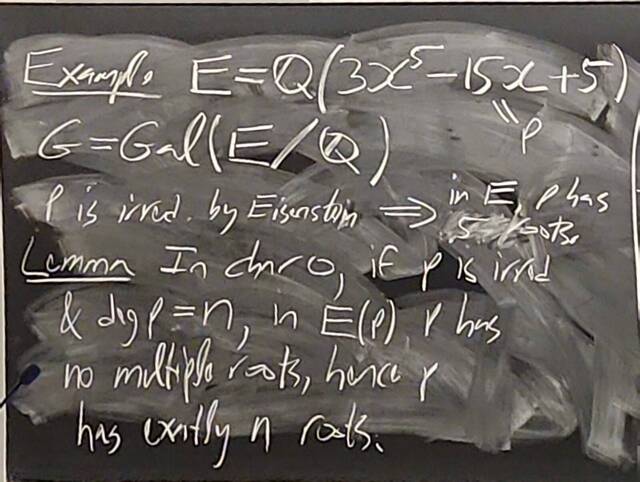 Example E=Q(3x⁵-15x+5)
\\ p
G=Gal(E/Q)
p is irred. by Eisenstein ⟹ in E, p has 5 roots.
Lemma In char 0, if p is irred
& deg p=n, in E(p) p has
no multiple roots, hence p
has exactly n roots.